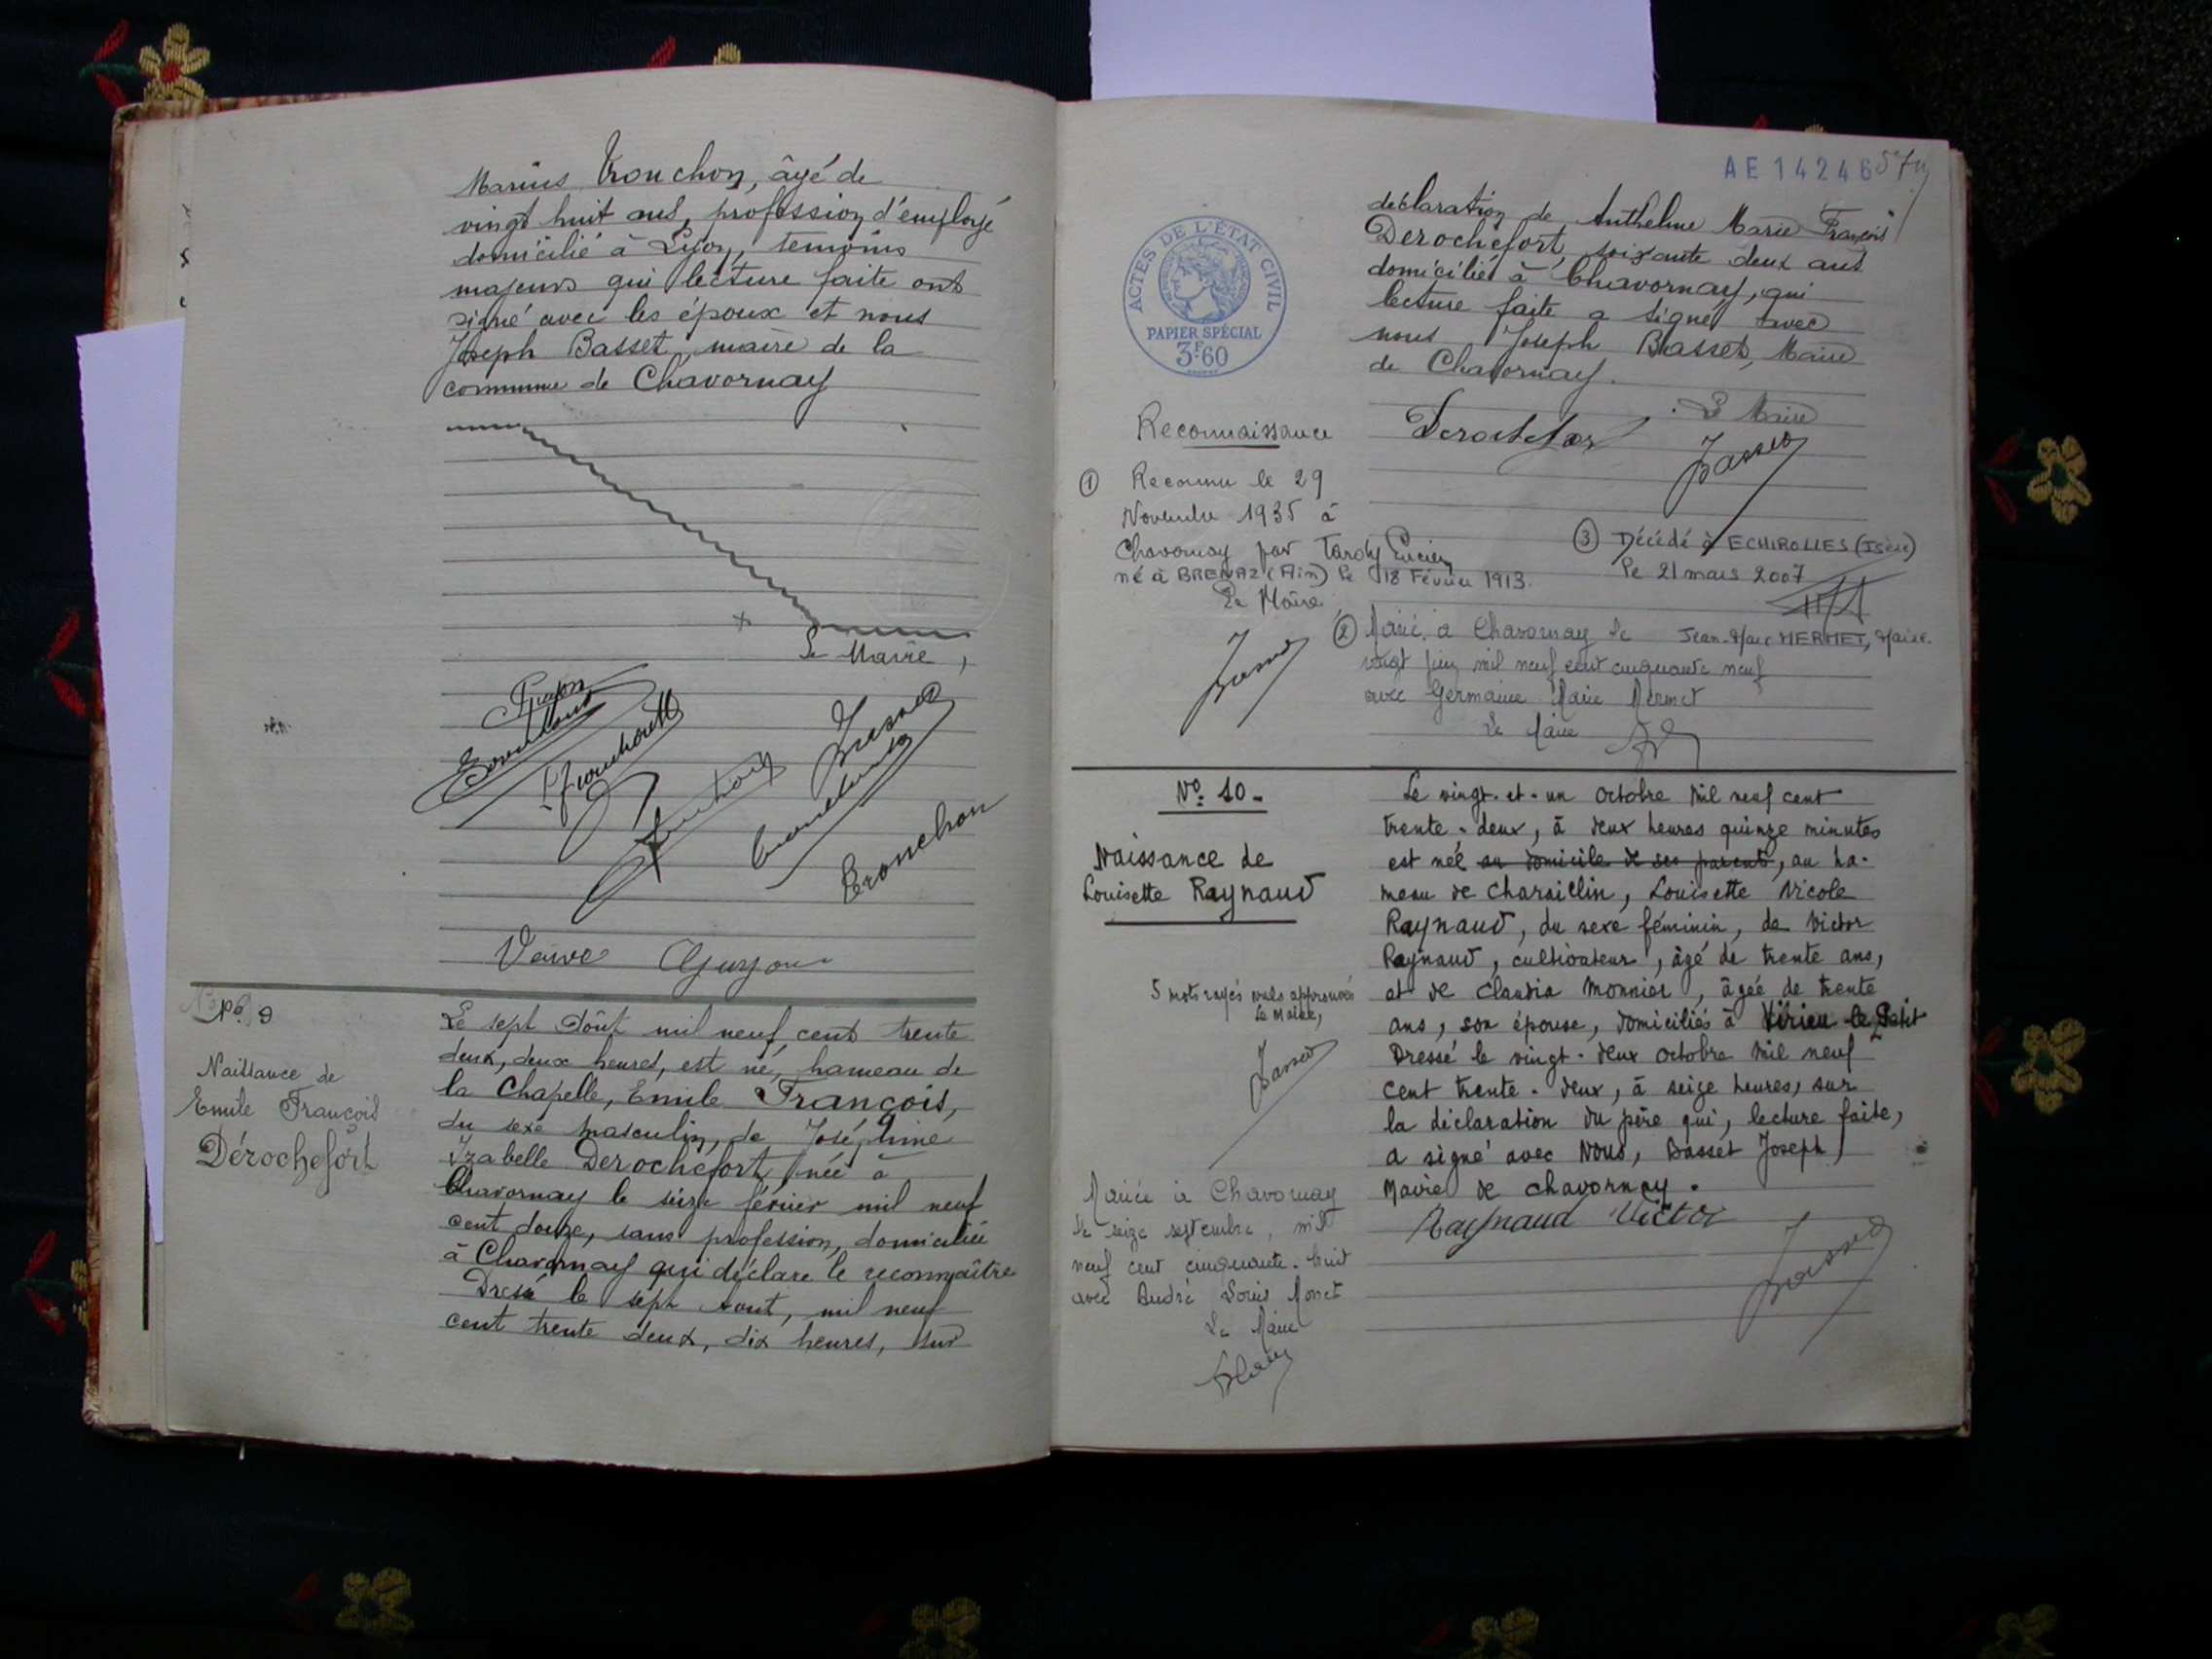 Marius Tronchon, âgé de
vingt huit ans, profession d'employé
domicilié à Lyon, temoins
majeurs qui lecture faite ont
signé avec les époux et nous
Joseph Basset maire de la
commune de Chavornay
Le Maire,
Tronchon
Veuve Guyon
Nº 9
Naissance de
Emile François
Dérochefort
Le sept Août mil neuf cent trente
deux, deux heures, est né, hameau de
la Chapelle, Emile François,
du sexe masculin, de Joséphine
Izabelle Derochefort née à
Chavornay le seize février mil neuf
cent douze, sans profession, domiciliée
à Chavornay qui déclare le reconnaître
Dressé le sept Août, mil neuf
cent trente deux, dix heures, sur
AE 14246
ACTES DE L'ÉTAT CIVIL
PAPIER SPÉCIAL
3F60
déclaration de Anthelme Marie François
Derochefort, soixante deux ans
domicilié à Chavornay, qui
lecture faite a signé avec
nous Joseph Basset, Maire
de Chavornay.
Le Maire
Derochefort
Basset
Reconnaissance
① Reconnu le 29
Novembre 1935 à
Chavornay par Tardy Lucien
né à BRENAZ (Ain) le 18 Février 1913.
Le Maire
Basset
③ Décédé à ECHIROLLES (Isère)
le 21 mars 2007
Jean-Marc MERMET, Maire.
② Marié à Chavornay le
vingt juin mil neuf cent cinquante neuf
avec Germaine Marie Mermet
Le Maire
Nº 10-
Naissance de
Louisette Raynaud
5 mots rayés nuls approuvés
Le Maire,
Basset
Mariée à Chavornay
le seize septembre, mil
neuf cent cinquante-huit
avec André Louis Monet
Le Maire
Le vingt-et-un octobre mil neuf cent
trente-deux, à deux heures quinze minutes
est née au domicile de ses parents, au ha-
meau de Charaillin, Louisette Nicole
Raynaud, du sexe féminin, de Victor
Raynaud, cultivateur, âgé de trente ans,
et de Claudia Monnier, âgée de trente
ans, son épouse, domiciliés à Virieu le Petit
Dressé le vingt-deux octobre mil neuf
cent trente-deux, à seize heures, sur
la déclaration du père qui, lecture faite,
a signé avec Nous, Basset Joseph,
Maire de Chavornay.
Raynaud Victor
Basset